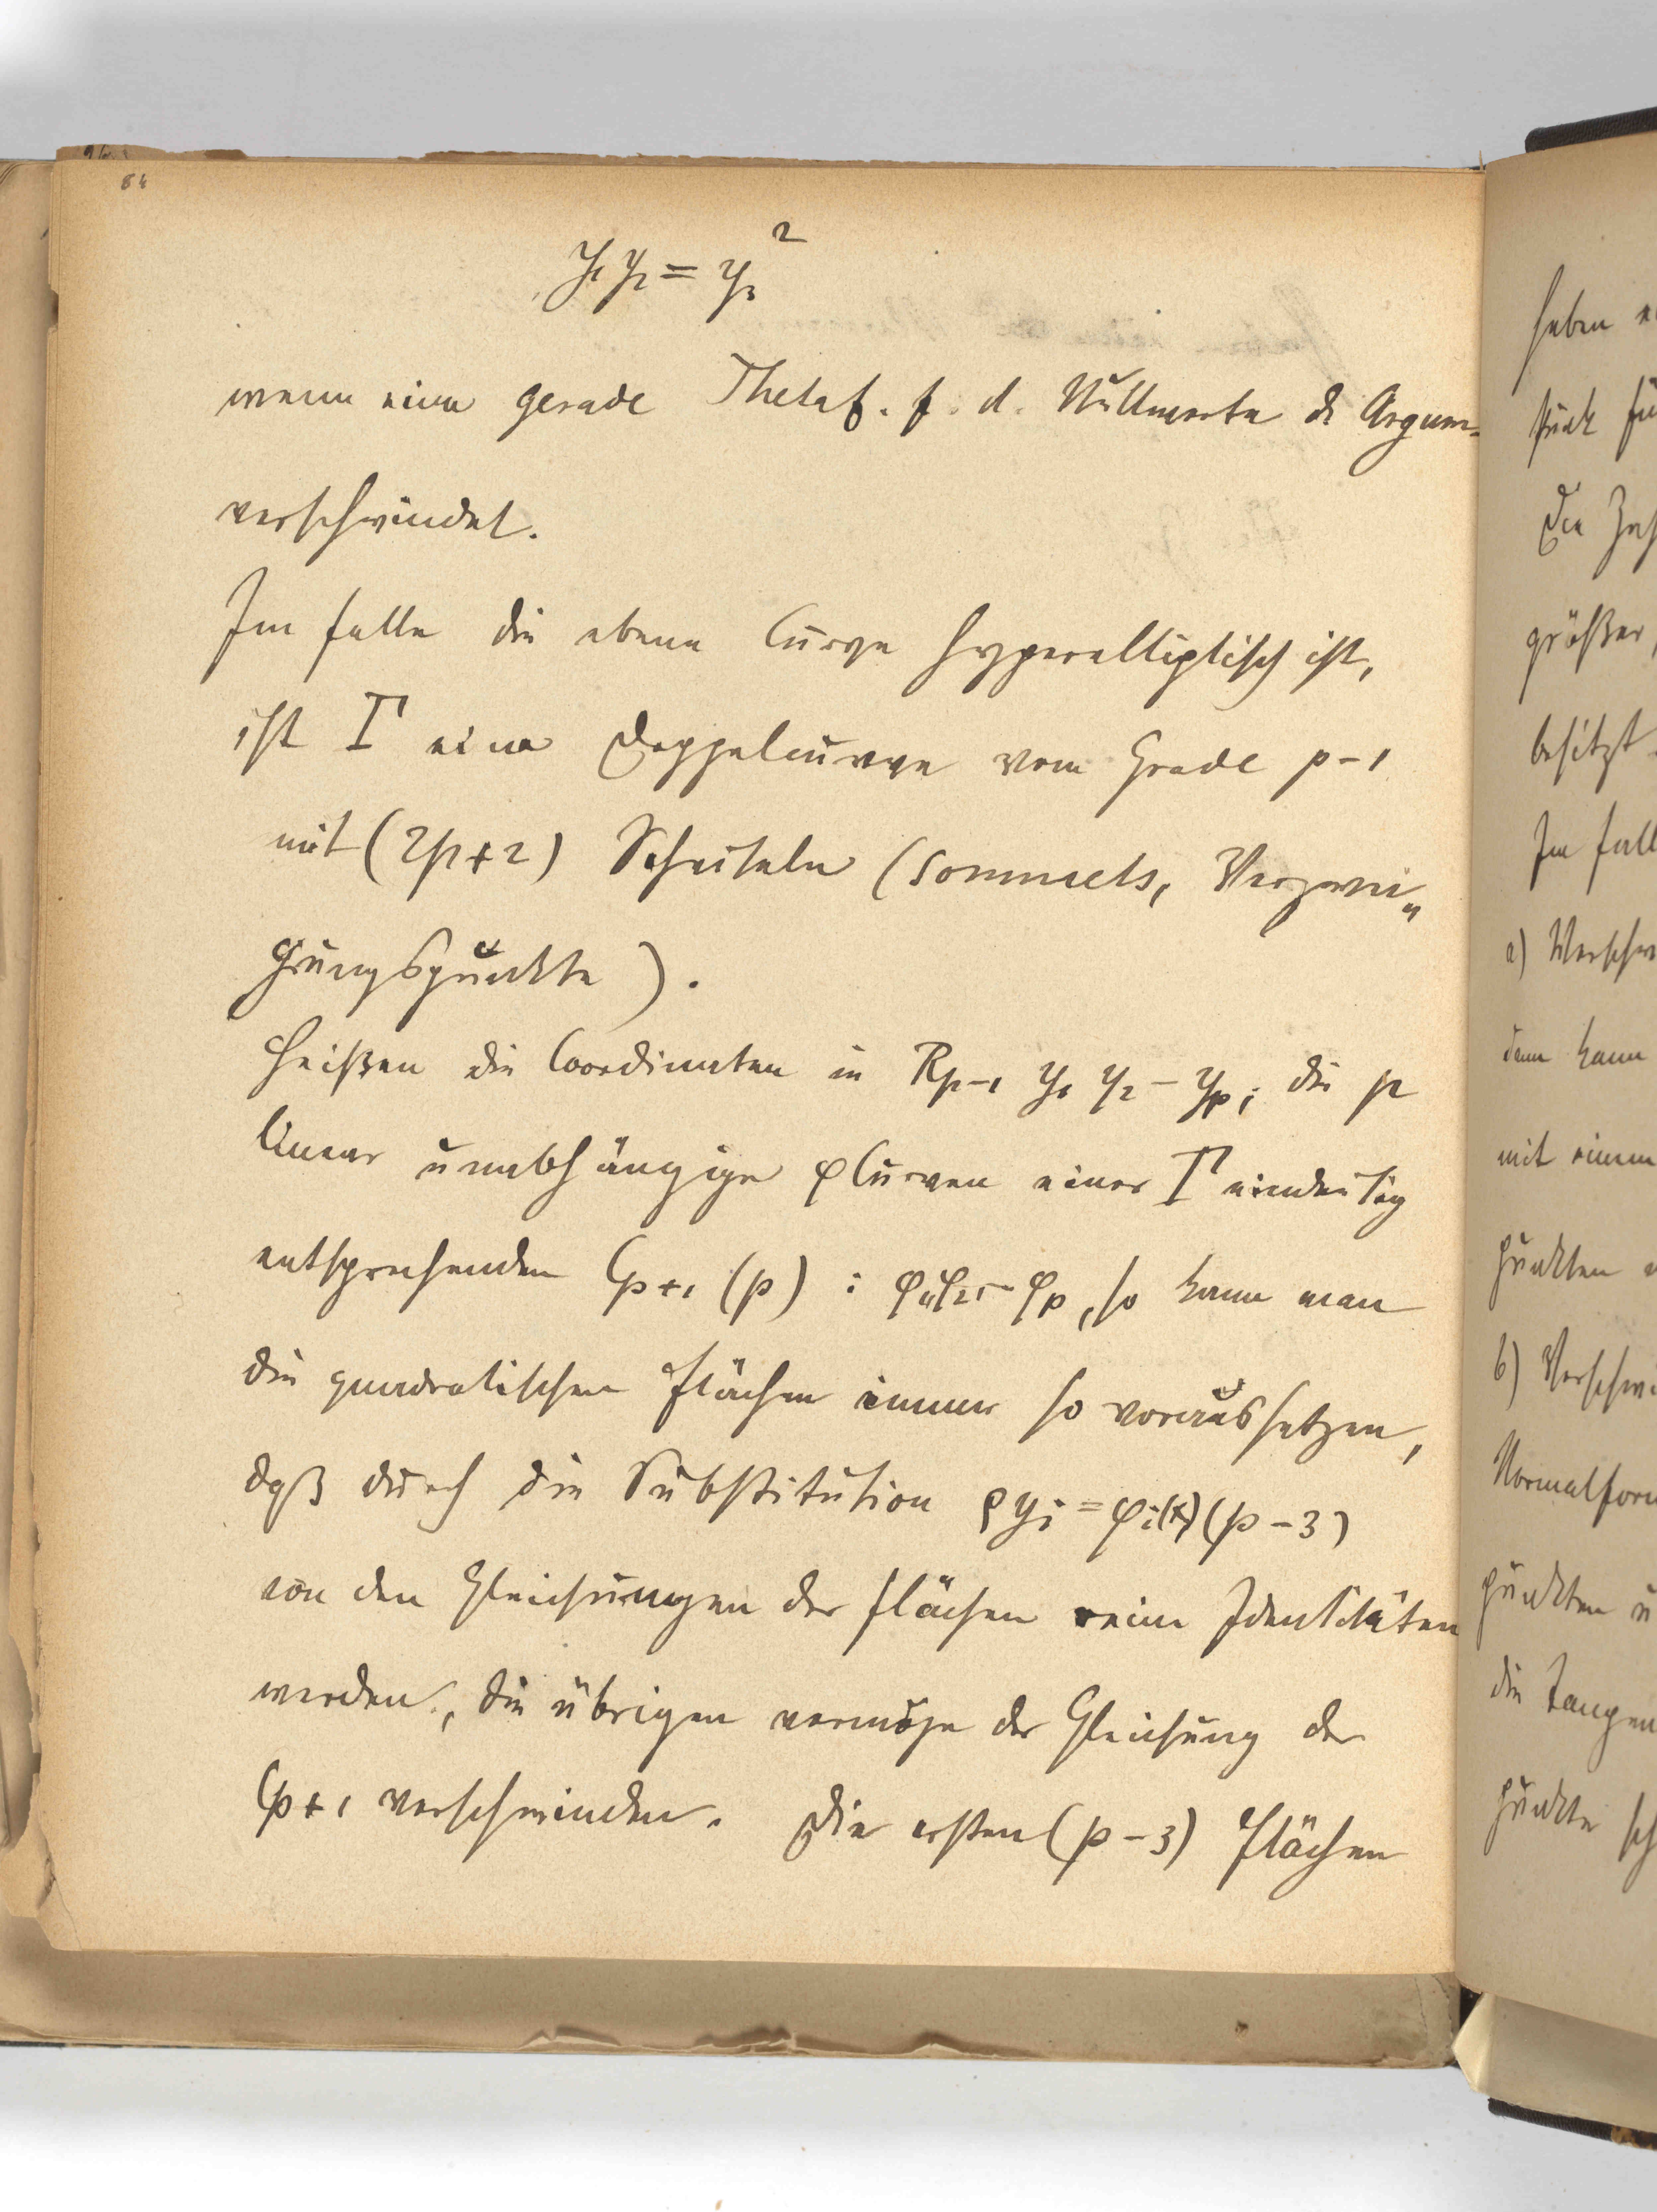 84
y₁ y₂ = y₃²
wenn eine gerade Thetaf. f. d. Nullwerte d. Argum.
verschwindet.
Im Falle die ebene Curve hyperelliptisch ist,
ist Γ eine Doppelcurve vom Grade p-1
mit (2p+2) Scheiteln (sommets, Verzwei„
gungspunkte).
Heißen die Coordinaten in Rp-1 y₁ y₂ - yp; die p
linear unabhängige φCurven einer Γ eindeutig
entsprechenden Cp+1 (p) : φ₁, φ₂, - φp, so kann man
die quadratischen Flächen immer so voraussetzen,
daß durch die Substitution ρyi = φi(x) (p-3)
von den Gleichungen der Flächen reine Identitäten
werden, die übrigen vermöge der Gleichung der
Cp+1 verschwinden. Die ersten (p-3) Flächen
haben
Die
größer,
besitzt.
Im Fall
a)
dann kann
mit einem
punkten
b)
punkten u
die Tangen
punkte sch